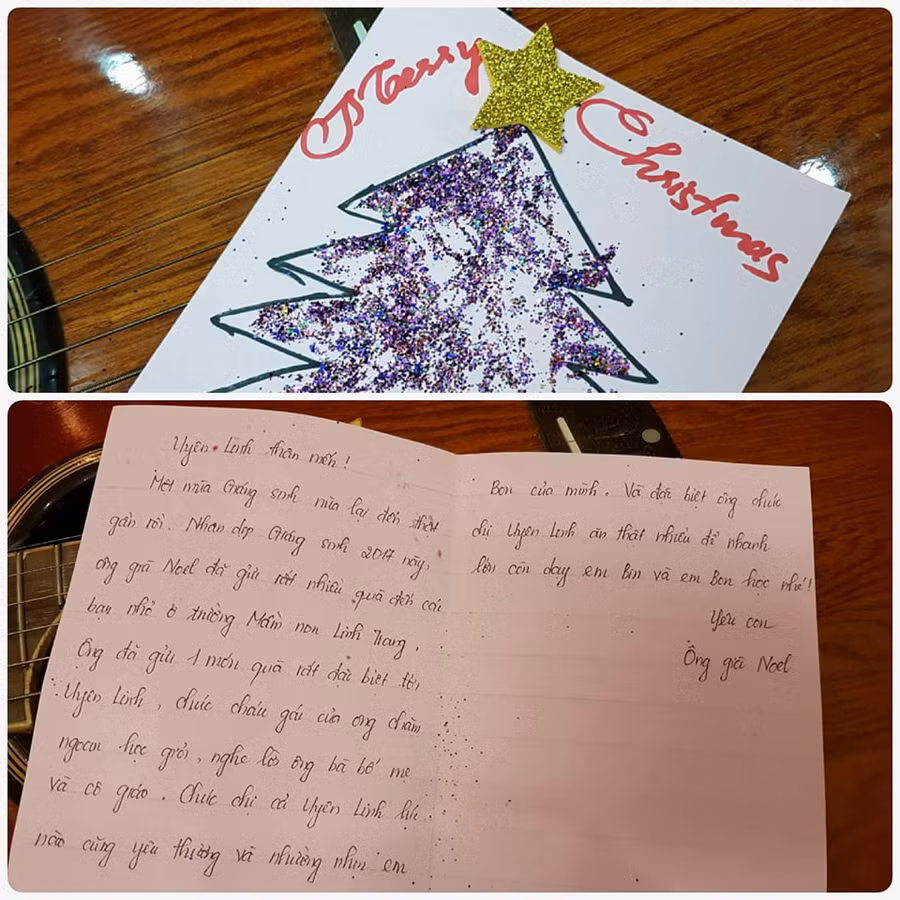 Merry Christmas
Uyên Linh thân mến!
Một mùa Giáng sinh nữa lại đến thật
gần rồi. Nhân dịp Giáng sinh 2017 này,
ông già Noel đã gửi rất nhiều quà đến các
bạn nhỏ ở trường Mầm non Linh Trang.
Ông đã gửi 1 món quà rất đặc biệt tới
Uyên Linh, chúc cháu gái của ông chăm
ngoan học giỏi, nghe lời ông bà bố mẹ
và cô giáo. Chúc chị cả Uyên Linh lúc
nào cũng yêu thương và nhường nhịn em
Bon của mình. Và đặc biệt ông chúc
chị Uyên Linh ăn thật nhiều để nhanh
lớn còn dạy em Bin và em Bon học nhé!
Yêu con
Ông già Noel